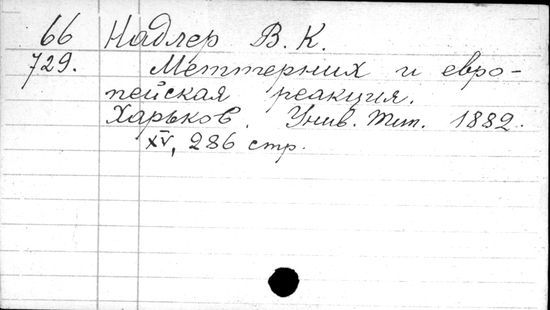 66 Надлер В. К.
729. Меттерних и евро-
пейская реакция.
Харьков. Унив. Тип. 1882.
XV, 286 стр.